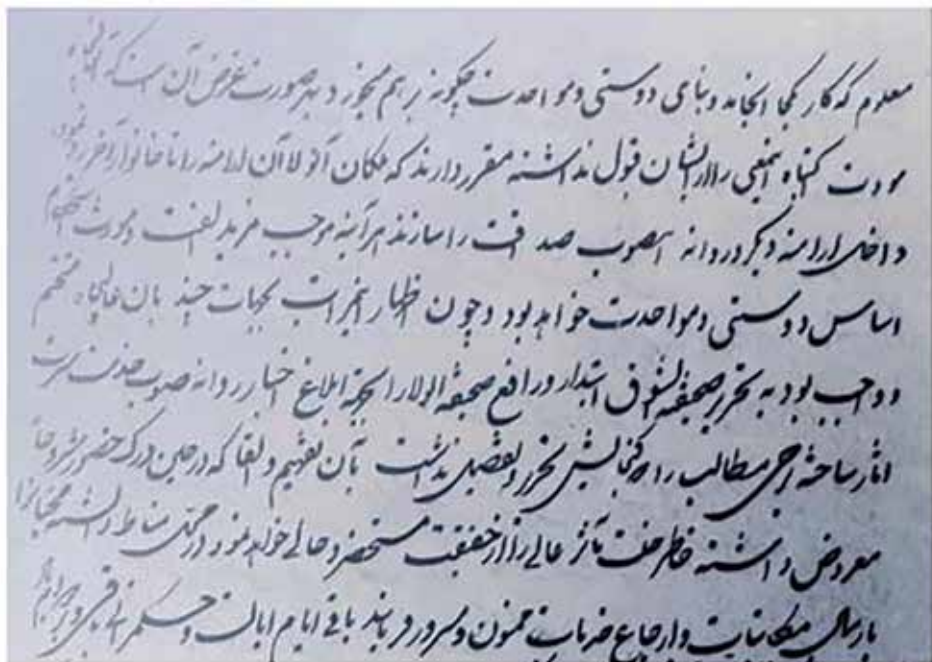 معلوم که کار بکجا انجامد و بنای دوستی و مواحدت چگونه بر هم میخورد در هر صورت غرض آن است که
مودت اکتناه اینمعنی را از ایشان قبول نداشته مقرر دارند که آن ارامنه را با خانوار آخر
داخل ارامنه دیگر روانه اینصوب صداقت را سازند هرآینه موجب مزید الفت و مورث استحکام
اساس دوستی و مواحدت خواهد بود و چون اظهار اینمراتب بجهات چند بان عالیجاه مفخم
و واجب بود به تحریر صحیفة الشوق ابتدار و رافع صحیفة الولا را بجهة ابلاغ اخبار روانه صوب
آثار ساخته اجرای مطالب را که گنجایش تحریر و تفصیل نداشت بآن تفهیم و القا که در حین درک حضور مشروحا
معروض داشته خاطر عالی را از حقیقت مستحضر و حالی خواهد نمود
بارسال مکاتبات و ارجاع خدمات ممنون و مسرور فرمایند باقی ایام ایالت و حکمرانی باقی